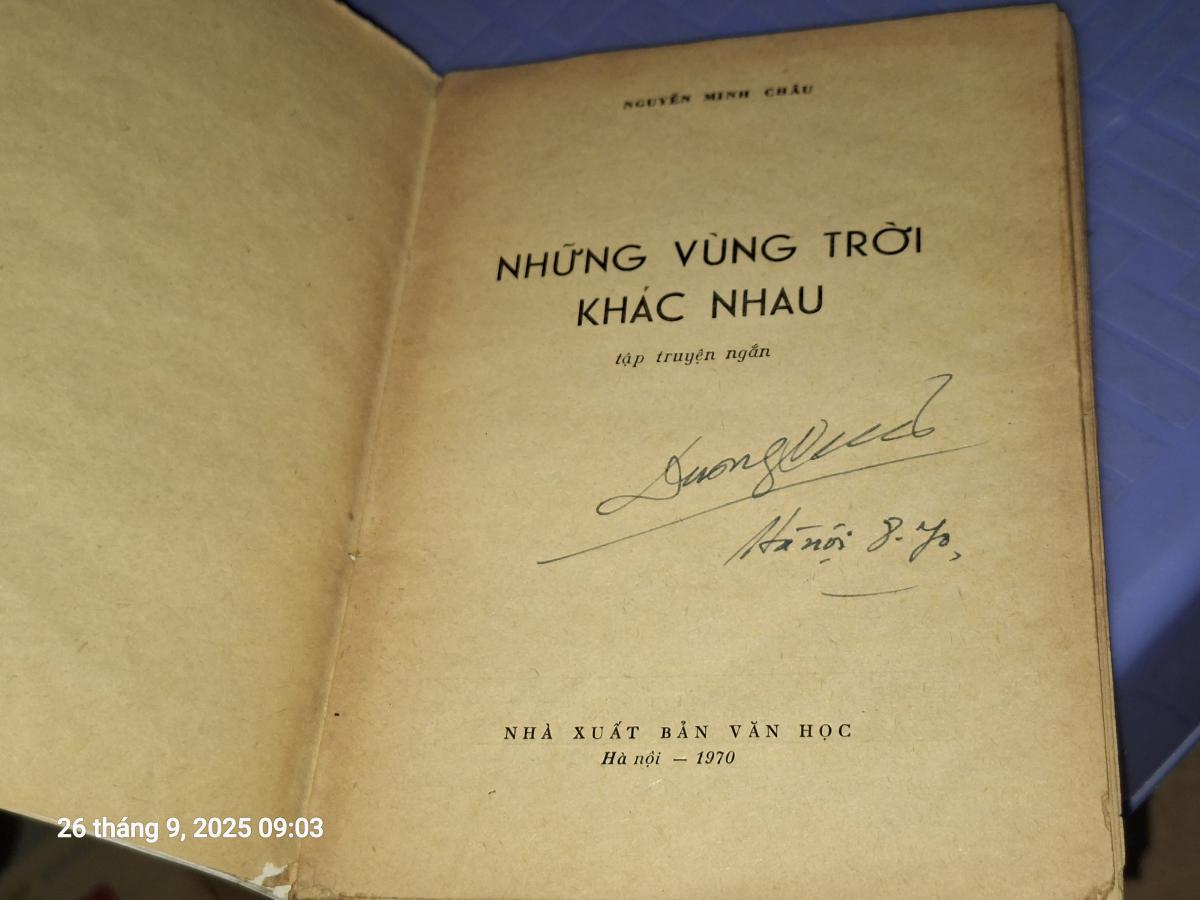 NGUYỄN MINH CHÂU
NHỮNG VÙNG TRỜI
KHÁC NHAU
tập truyện ngắn
Hà nội 8-70,
NHÀ XUẤT BẢN VĂN HỌC
Hà nội — 1970
26 tháng 9, 2025 09:03